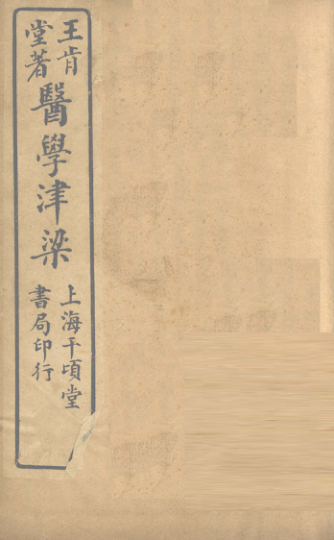 王肯堂著
醫學津梁
上海千頃堂書局印行